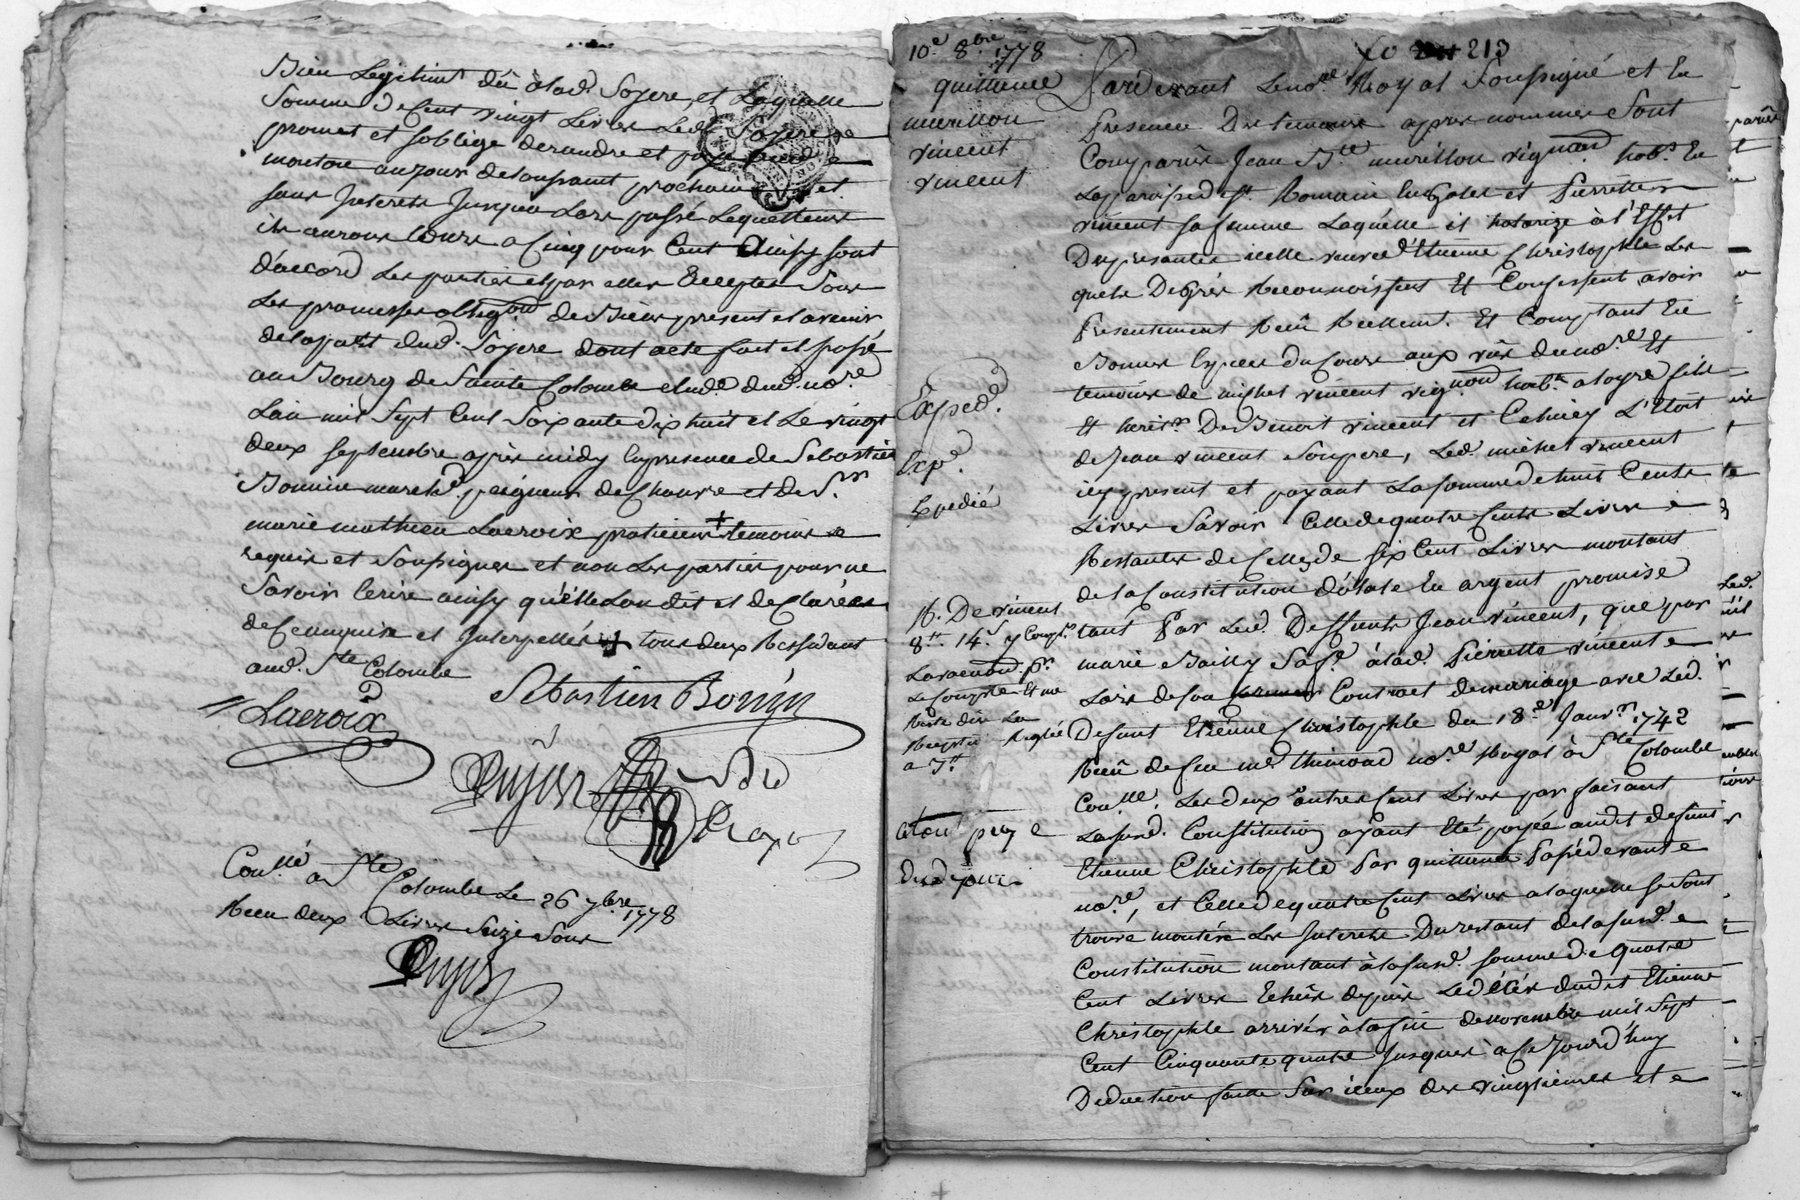 Bien Legitimt dû à lad. Soyere, et Laquelle
Somme de Cent vingt Livres Led. Soyere
promet et soblige de rendre et payer
montou au jour de toussaint prochain et
sans Interets Jusqu'a Lors passé Lequel tems
ils auront Cours a Cinq pour Cent Ainsy sont
d'accord Les parties et par elles Accepter Sous
Les promesses obligaon de Biens present et avenir
de la part dud. Soyere dont acte fait et passé
au Bourg de Sainte Colombe etude dud. nore
Lan mil Sept Cent Soixante dix huit et Le vingt
deux septembre après midy En presence de Sebastien
Bonnin march. peigneur de Chanvre et de Sr
marie mathieu Lacroix praticien + temoins
requis et Soussignes et non Les parties pour ne
Savoir Ecrire ainsy qu'elles ont dit et declarées
de ce enquises et Interpellés + tous deux Residant
aud. Ste Colombe
Lacroix
Sebastien Bonin
Conllé a Ste Colombe Le 26 7bre 1778
Recu deux Livres Seize Sous
fo 213
10e 8bre 1778
quittance
murillon
vincent
vincent
Pardevant Le nore Royal Soussigné et En
Presence Des temoins apres nommes Sont
Comparus Jean Bte murillon vigneron habt En
La paroisse de St. Romain En Galet et Pierrette
vincent sa femme Laquelle il hatorize à l'Effet
Des presantes icelle veuve d'Etienne Christophle Les
quels De Grés Reconnoissent Et Confessent avoir
Presentement Reçu Reellemt. Et Comptant En
Bonnes Especes du Cours aux vûe du nore Et
temoins de michel vincent vigneron habt. a Loyre fils
Et herits. De Benoit vincent et Celuicy L'Etoit
de Jean vincent Son pere, Led. michel vincent
icy present et payant La Somme de huit Cents
Livres Savoir Celle de quatre Cents Livres
Restantes de Celle de Six Cent Livres montant
de la Constitution dotale En argent promise
tant Par Led. Deffunt Jean vincent, que par
marie Bailly Sa fe. à lad. Pierrette vincent
Lors de son Contract de mariage avec Led.
Defunt Etienne Christophle du 18e Janvr. 1742
Reçu de feu me. thivioud nore Royal à Ste Colombe
Conllé, Les deux autres Cent Livres par faisant
La susd. Constitution ayant Eté payée audit defunt
Etienne Christophle Par quittance Passé devant
nore, et Celle de quatre Cent Livres a laquelle se sont
trouvé montér Les Interets Du restant de la susd.
Constitution montant à la susd. Somme de quatre
Cent Livres Echûs depuis Le décès dudit Etienne
Christophle arrivée à la fin de novembre mil Sept
Cent Cinquante quatre Jusques à Ce Jourd'huy
Deduction faite Sur iceux des vingtiemes et
Exped.
Exp.
Expedié
R. De vincent
8# 14s